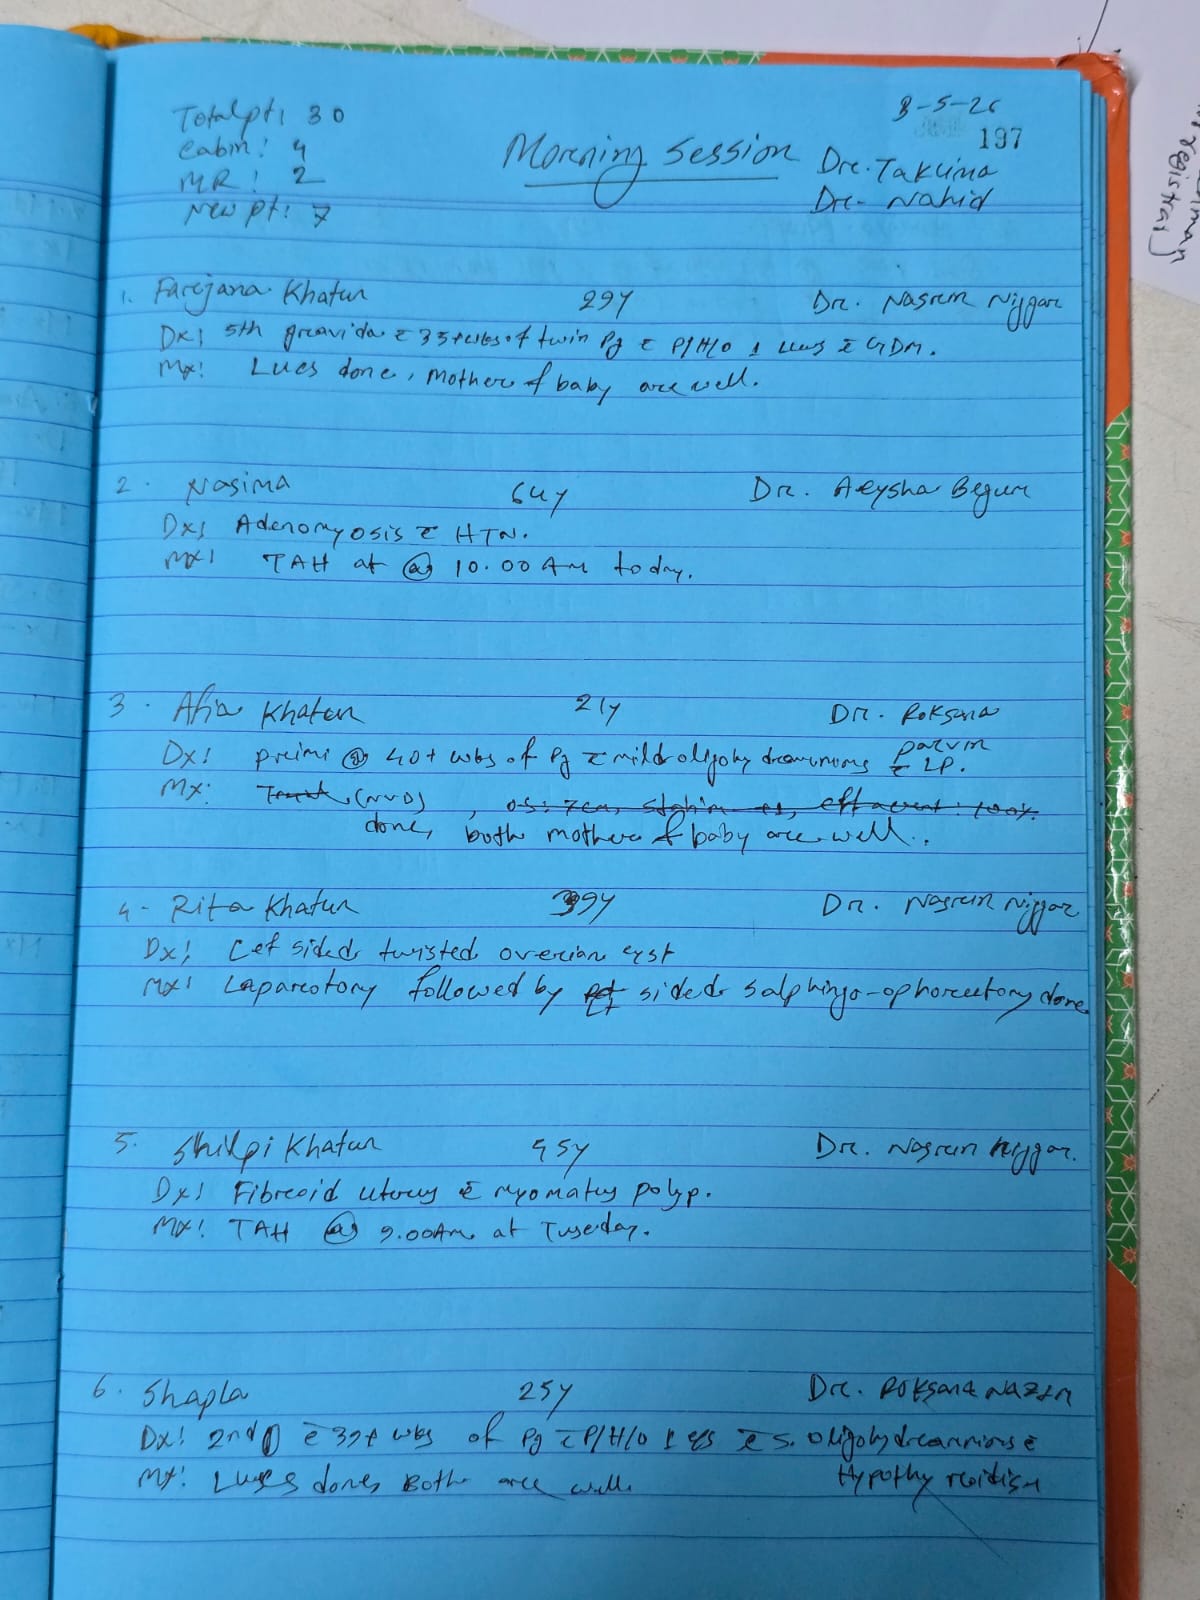 Total pt: 30
Cabin: 4
MR: 2
New pt: 7
3-5-26
197
Morning Session
Dr. Taklima
Dr. Nahid
1. Farjana Khatun 29y Dr. Nasrin Niggar
Dx: 5th gravida c̄ 35+ wks of twin Pg c̄ P/H/O 1 LUCS c̄ GDM.
Mx: Lucs done, Mother & baby are well.
2. Nasima 64y Dr. Aeysha Begum
Dx: Adenomyosis c̄ HTN.
Mx: TAH at @ 10.00 AM today.
3. Afia Khatun 21y Dr. Roksana
Parvin
Dx: Primi @ 40+ wks of Pg c̄ mild oligohydramnions c̄ LP.
Mx: (NVD), os: 7cm, effacement: 100%
done, both mother & baby are well.
4- Rita Khatun 39y Dr. Nasrin Niggar
Dx: Lef sided twisted overian cyst
Mx: Laparotomy followed by sided salphingo-ophorectomy done
5. Shilpi Khatun 45y Dr. Nasrin Niggar.
Dx: Fibroid uterus c̄ myomatus polyp.
Mx: TAH @ 9.00 Am at Tuseday.
6. Shapla 25y Dr. Roksana Nazin
Dx: 2nd c̄ 37+ wks of Pg c̄ P/H/O 1 c̄ S. Oligohydramnions c̄
Hypothyroidism
Mx: Lucs done, Both are well.